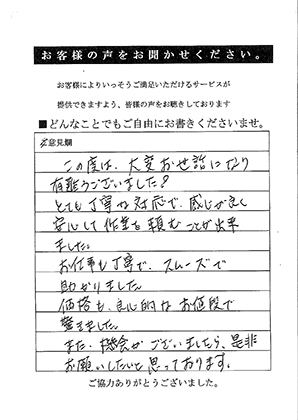 お客様の声をお聞かせください。
お客様によりいっそうご満足いただけるサービスが
提供できますよう、皆様の声をお聴きしております
■どんなことでもご自由にお書きくださいませ。
ご意見欄
この度は、大変お世話になり
有難うございました!
とても丁寧な対応で、感じが良く
安心して作業を頼むことが出来
ました。
お仕事も丁寧で、スムーズで
助かりました。
価格も、良心的なお値段で
驚きました。
また、機会がございましたら、是非
お願いしたいと思っております。
ご協力ありがとうございました。